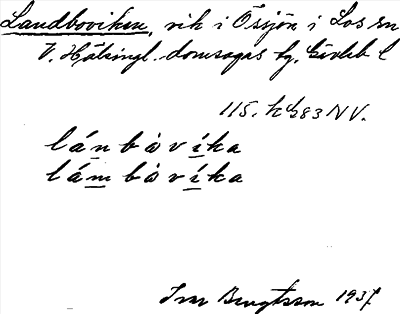 Landboviken, vik i Össjön i Los sn
V. Hälsingl. domsagas tg, Gävleb l
115. k 483 NV.
lánbòvíka
lámbòvíka
Ivar Bengtsson 1937